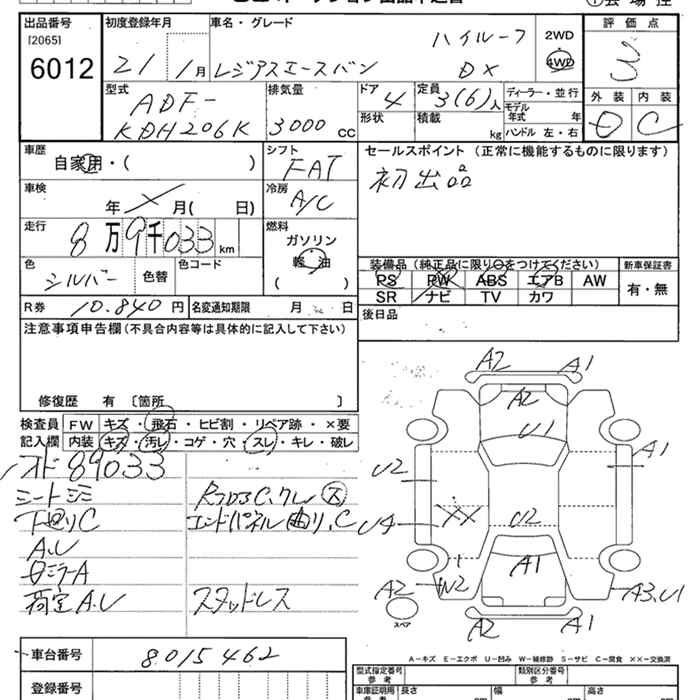 出品番号
[2065]
6012
初度登録年月
21 1月
車名・グレード
レジアスエースバン
ハイルーフ
DX
2WD
4WD
評価点
3
外装 内装
C
型式
ADF-
KDH206K
排気量
3000 cc
ドア
4
定員
3(6)人
形状
積載
kg
ディーラー・並行
モデル
年式 年
ハンドル 左・右
車歴
自家用・( )
シフト
FAT
セールスポイント (正常に機能するものに限ります)
初出品
車検
年 × 月( 日)
冷房
A/C
走行
8万9千033km
燃料
ガソリン
軽油
( )
色
シルバー
色替
色コード
装備品(純正品に限り○をつけてください)
PS PW ABS エアB AW
SR ナビ TV カワ
新車保証書
有・無
R券
10.840 円
名変通知期限 月 日
後日品
注意事項申告欄(不具合内容等は具体的に記入して下さい)
修復歴 有 〔箇所 〕
検査員
記入欄
FW キズ・飛石・ヒビ割・リペア跡・×要
内装 キズ・汚レ・コゲ・穴・スレ・キレ・破レ
89033
シートシミ
下回りC
A.U
A
荷室A.U
エンドパネル曲り、C
スタッドレス
A2 A1
A2
U1
U2
A1
U4
XX
U2
A1
A2
W2
A3.U1
スペア
A2 A1
A−キズ E−エクボ U−凹み W−補修跡 S−サビ C−腐食 ××−交換済
車台番号
8015462
登録番号
型式指定番号
参考
類別区分番号
参考
車庫証明用
参考
長さ
幅
高さ